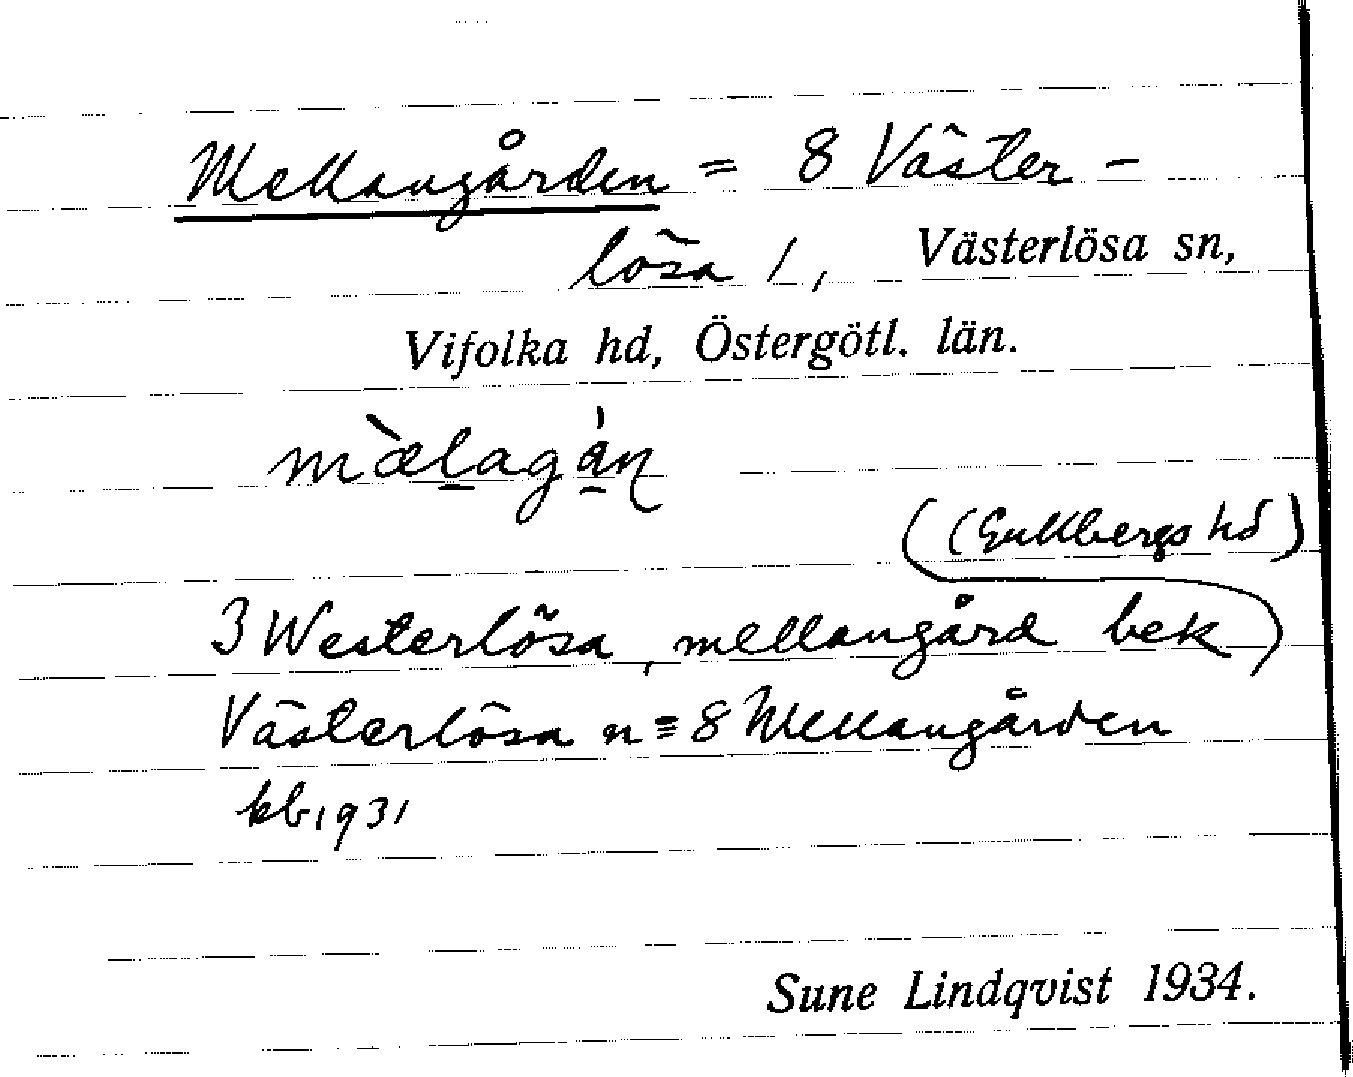 Mellangården = 8 Väster-
lösa 1, Västerlösa sn,
Vifolka hd, Östergötl. län.
mæ̀lagán
((Gullbergs hd)
3 Westerlösa, mellangård bek)
Västerlösa n≡8 Mellangården
kb 1931
Sune Lindqvist 1934.